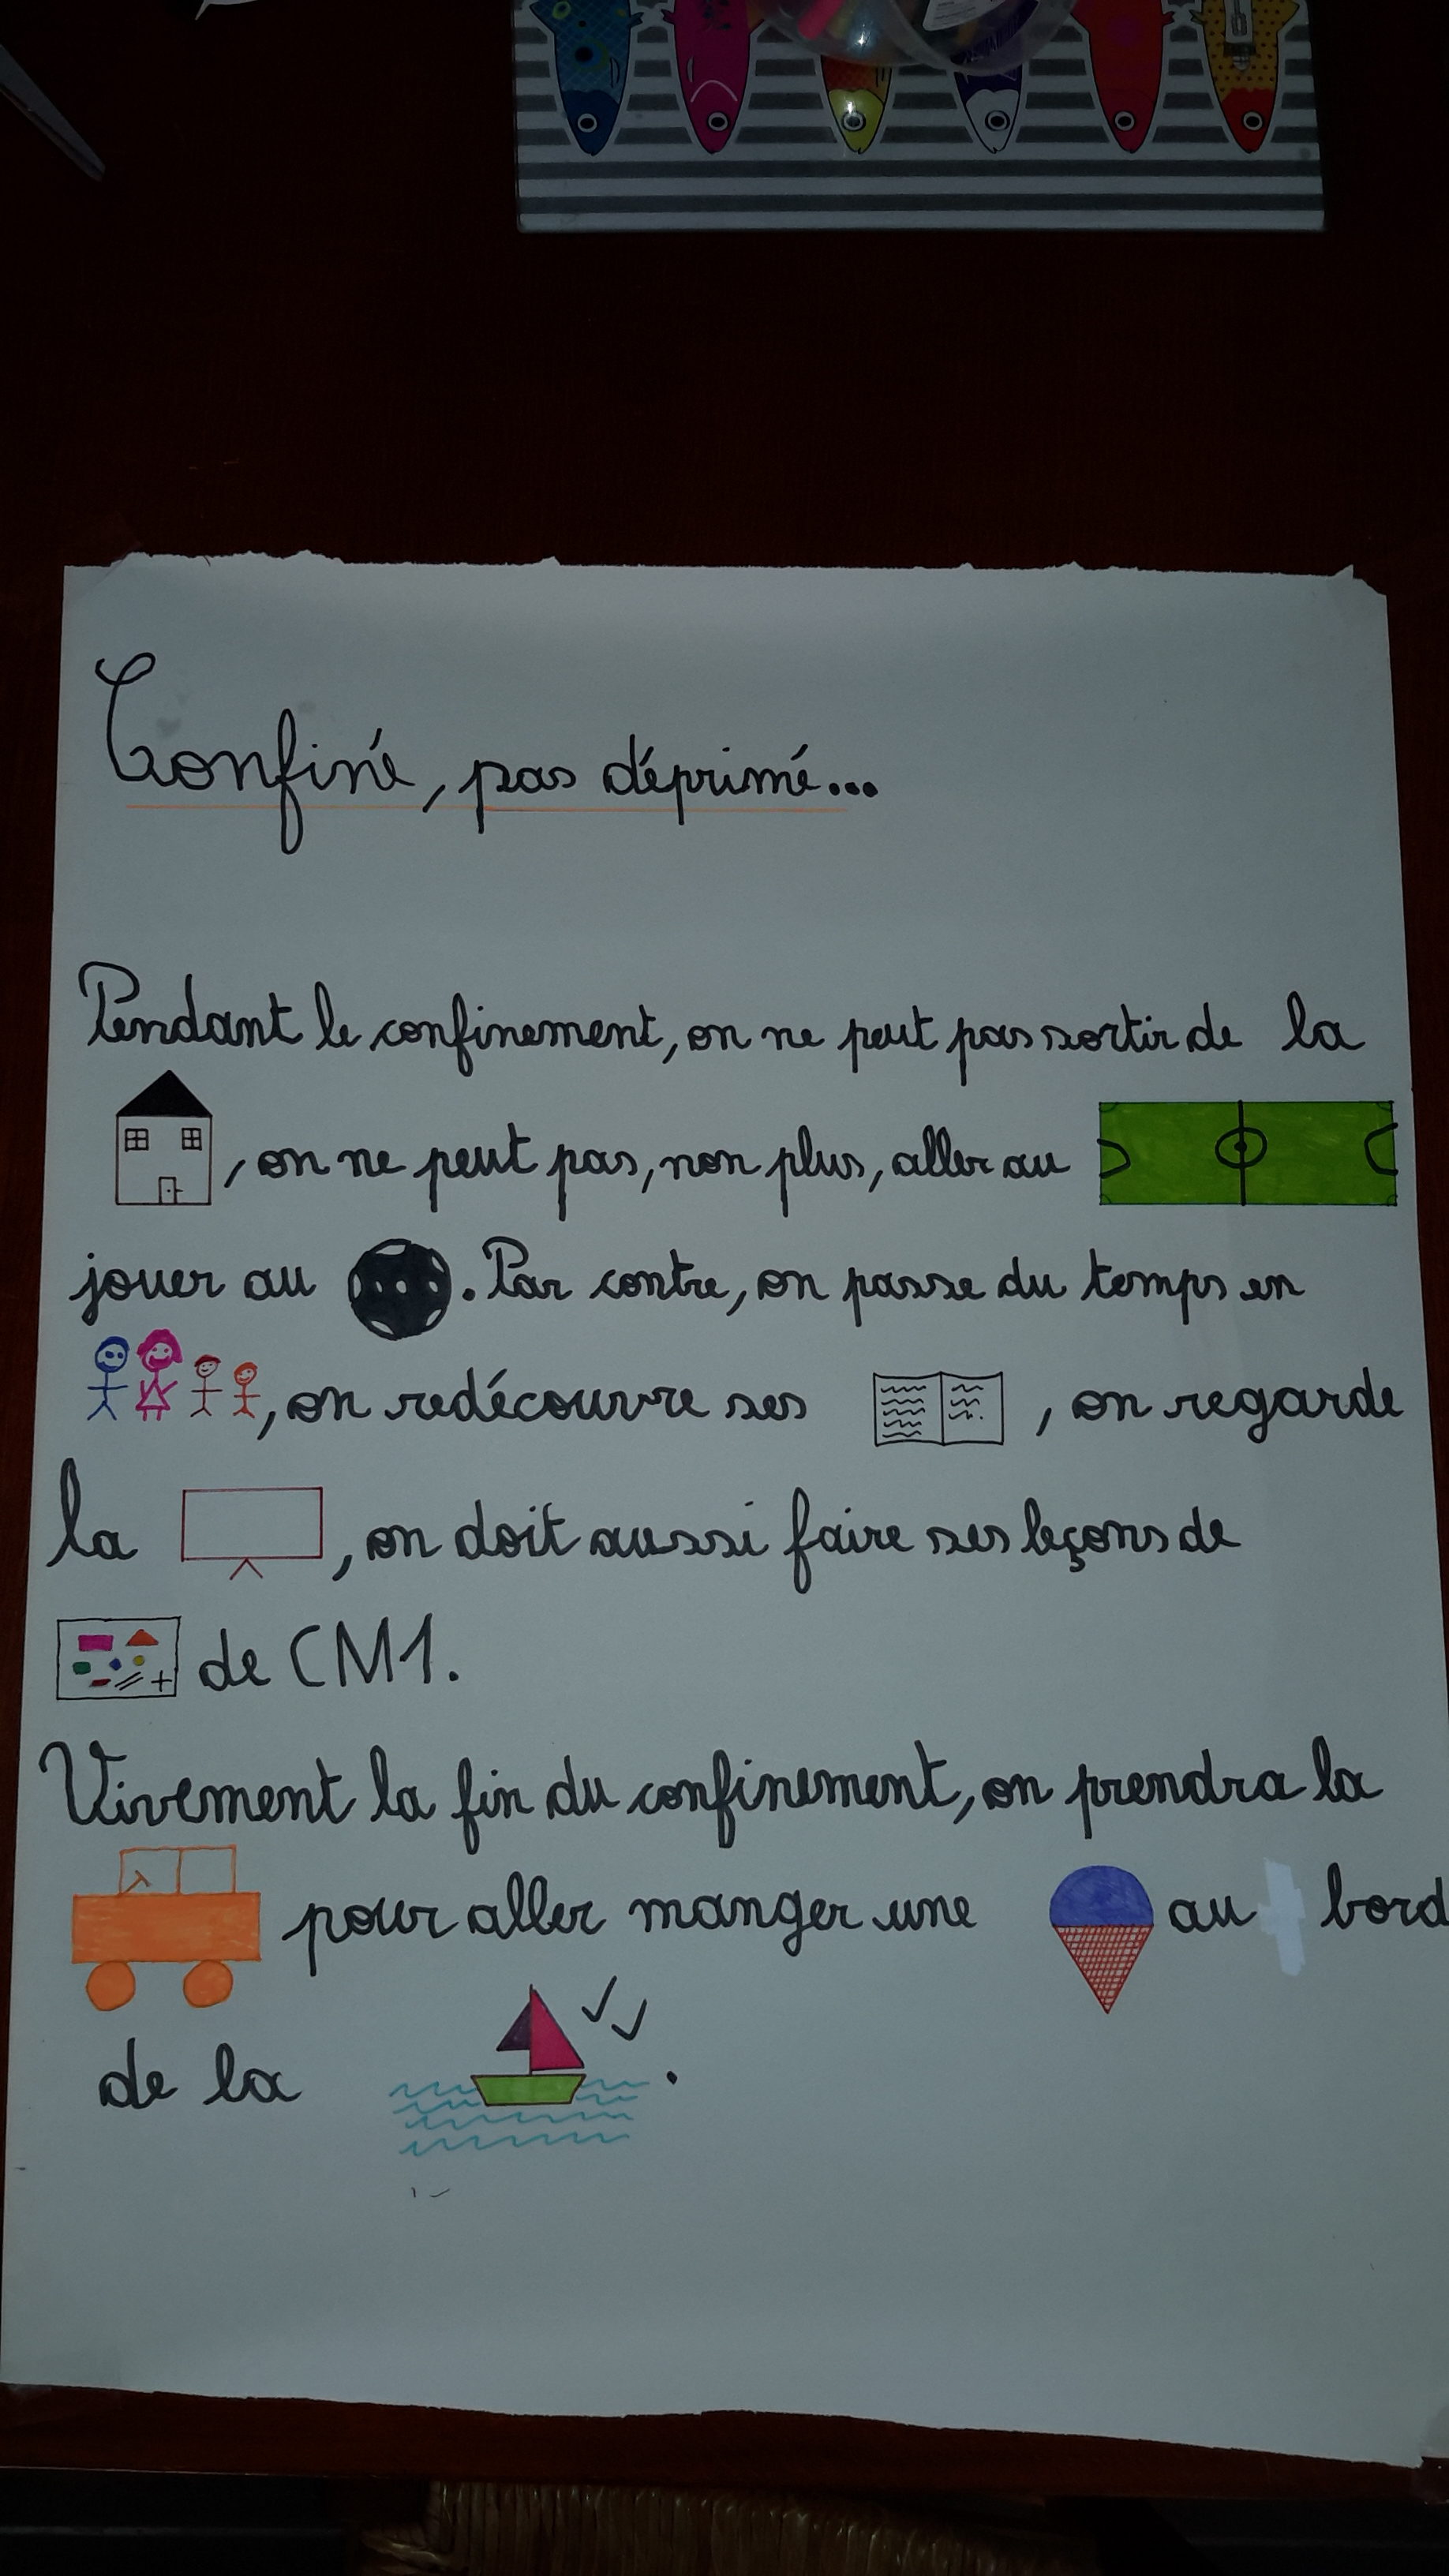 Confiné, pas déprimé...
Pendant le confinement, on ne peut pas sortir de la
, on ne peut pas, non plus, aller au
jouer au . Par contre, on passe du temps en
, on redécouvre ses , on regarde
la , on doit aussi faire ses leçons de
de CM1.
Vivement la fin du confinement, on prendra la
pour aller manger une au bord
de la .